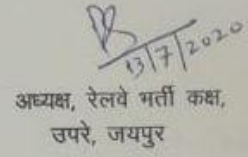 13/7/2020
अध्यक्ष, रेलवे भर्ती कक्ष,
उपरे, जयपुर